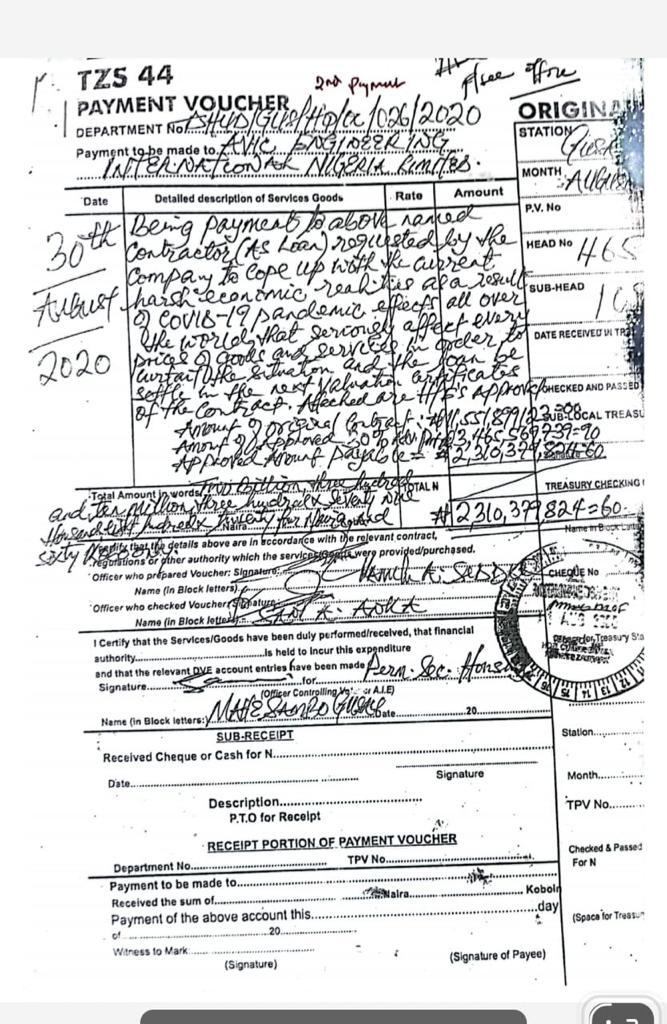 TZS 44
2nd Payment
PAYMENT VOUCHER
ORIGINA
DEPARTMENT No. /026/2020
Payment to be made to. AVIC ENGINEERING
INTERNATIONAL NIGERIA LIMITED.
STATION
MONTH
P.V. No
HEAD No 465
SUB-HEAD
DATE RECEIVED IN TR
Date
Detailed description of Services Goods
Rate
Amount
30th
August
2020
Being payment to above named
Contractor (As Loan) requested by the
Company to cope up with the current
harsh economic realities as a result
of COVID-19 pandemic effects all over
the world that seriously affect every
prices of goods and services in order to
curtail the situation and the loan be
settle in the next Valuation certificates
of the Contract. Attached are approva
Amount of original Contract:
Amount of Approved 30%
Approved Amount payable =
CHECKED AND PASSED
SUB-LOCAL TREASU
Total Amount in words Two Billion, three hundred
and ten million, three hundred seventy nine
thousand eight hundred twenty four Naira and
sixty
TOTAL N
2,310,379,824=60
TREASURY CHECKING
Name in Block Lette
I certify that the details above are in accordance with the relevant contract,
regulations or other authority which the services/Goods were provided/purchased.
Officer who prepared Voucher: Signature
Name (in Block letters)
Officer who checked Voucher (Signature
Name (in Block letters) SANI A. ANKA
CHEQUE No
I Certify that the Services/Goods have been duly performed/received, that financial
authority is held to incur this expenditure
and that the relevant DVE account entries have been made
Signature for Perm. Sec. Housi
(Officer Controlling or A.I.E)
Name (in Block letters: Date 20
SUB-RECEIPT
Received Cheque or Cash for N
Date
Signature
Description
P.T.O for Receipt
Station
Month
TPV No
RECEIPT PORTION OF PAYMENT VOUCHER
Department No TPV No
Payment to be made to
Received the sum of Naira Kobo
Payment of the above account this day
of 20
Witness to Mark
(Signature)
(Signature of Payee)
Checked & Passed
For N
(Space for Treasur